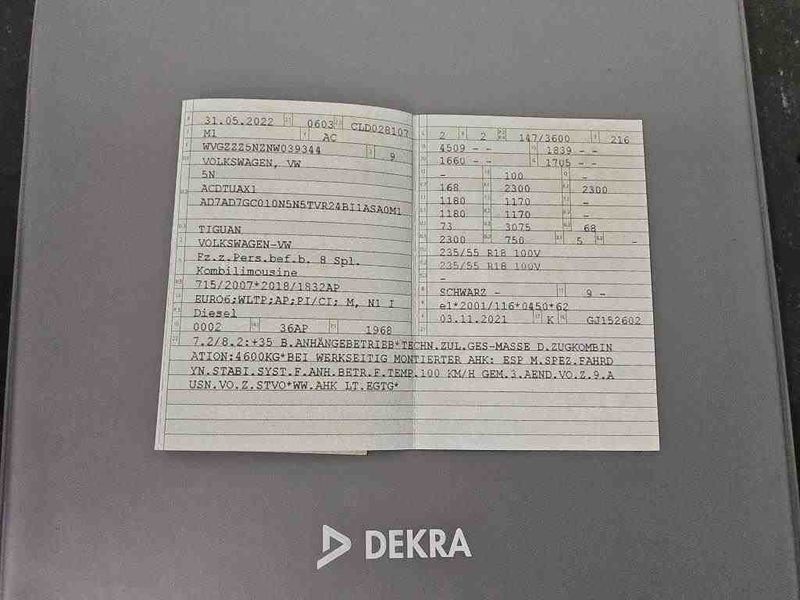 31.05.2022 0603 CLD028107
M1 AC
WVGZZZ5NZNW039344 9
VOLKSWAGEN, VW
5N
ACDTUAX1
AD7AD7GC010N5N5TVR24BI1ASA0M1
TIGUAN
VOLKSWAGEN-VW
Fz.z.Pers.bef.b. 8 Spl.
Kombilimousine
715/2007*2018/1832AP
EURO6;WLTP;AP;PI/CI; M, N1 I
Diesel
0002 36AP 1968
2 2 147/3600 216
4509 - - 1839 - -
1660 - - 1705 - -
- 100 -
168 2300 2300
1180 1170 -
1180 1170 -
73 3075 68
2300 750 5 -
235/55 R18 100V
235/55 R18 100V
-
SCHWARZ - 9 -
e1*2001/116*0450*62
03.11.2021 K GJ152602
7.2/8.2:+35 B.ANHÄNGEBETRIEB*TECHN.ZUL.GES-MASSE D.ZUGKOMBIN
ATION:4600KG*BEI WERKSEITIG MONTIERTER AHK: ESP M.SPEZ.FAHRD
YN.STABI.SYST.F.ANH.BETR.F.TEMP.100 KM/H GEM.3.AEND.VO.Z.9.A
USN.VO.Z.STVO*WW.AHK LT.EGTG*
DEKRA